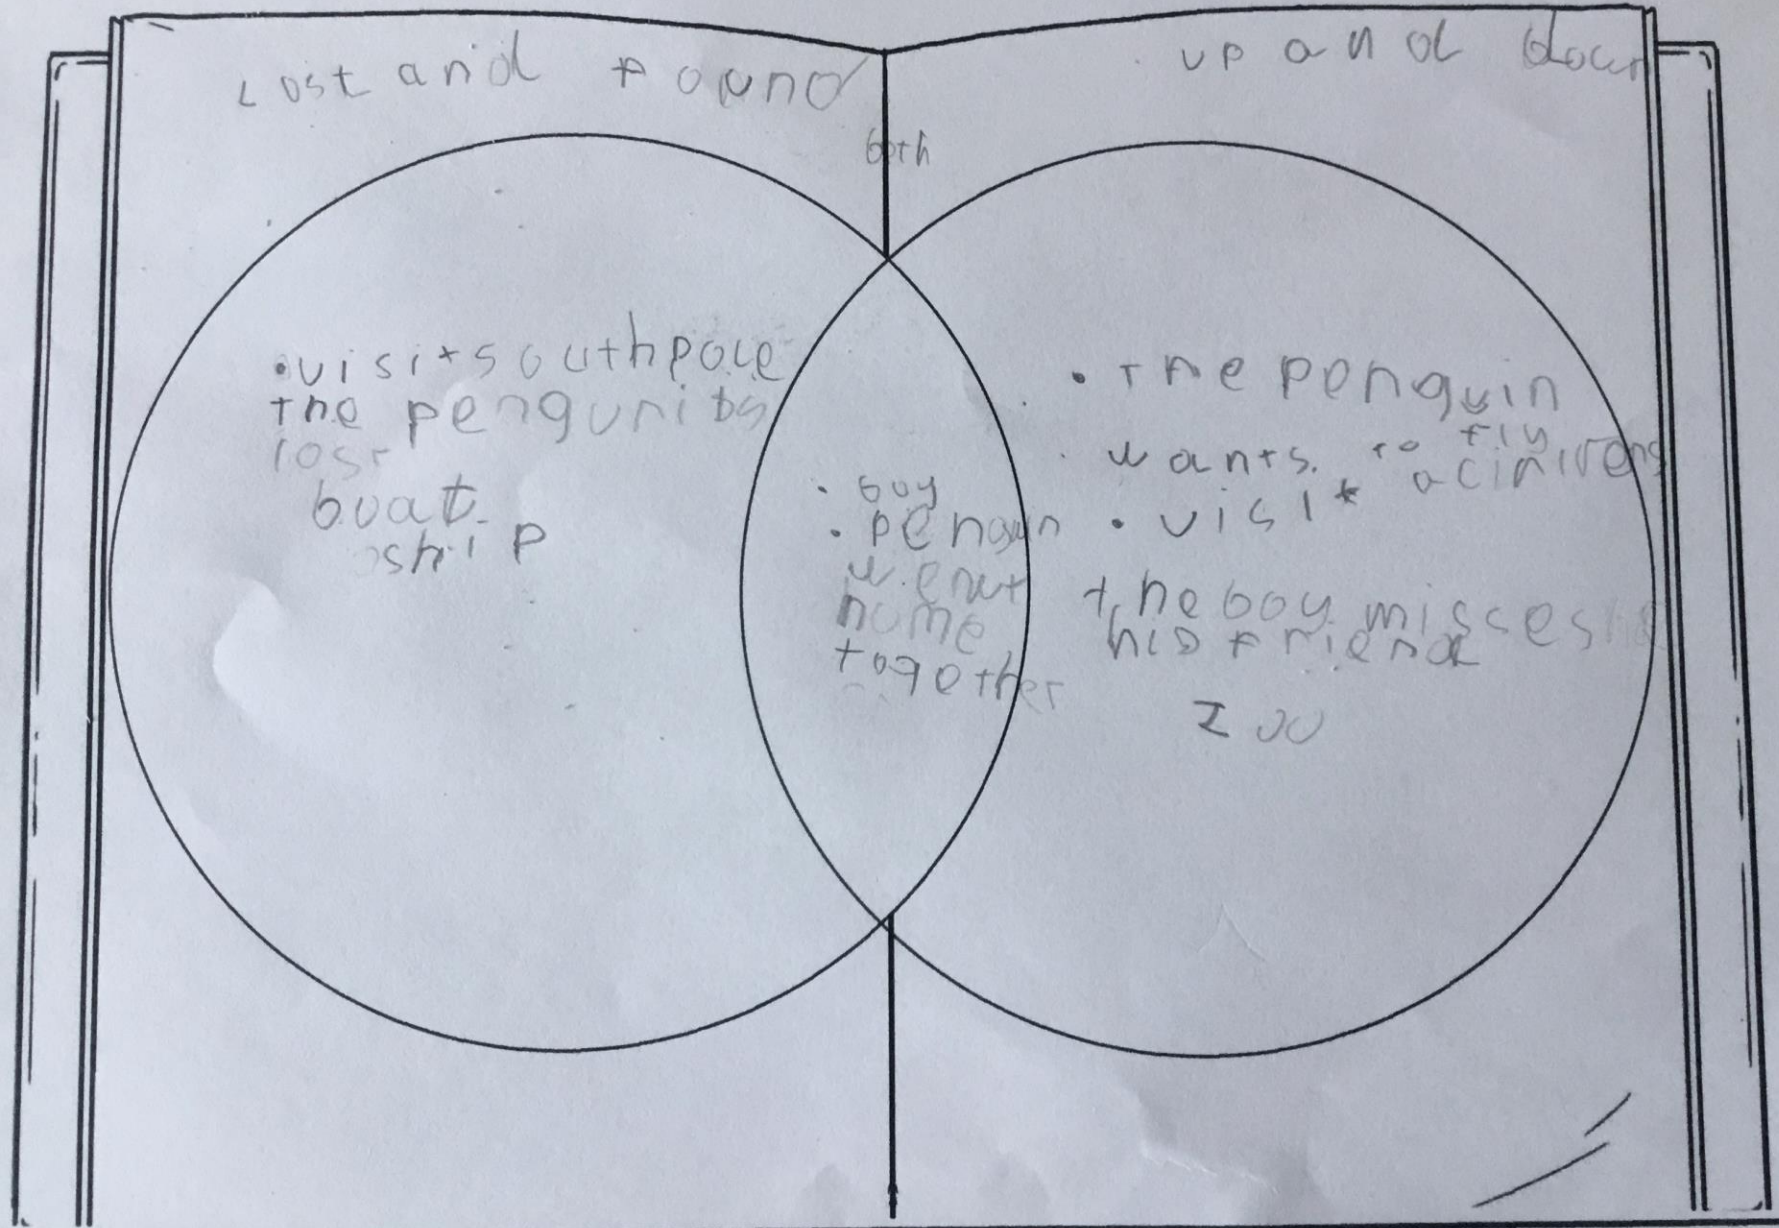 Lost and Found
up and down
both
• visit southpole
the pengun is
lost
boat
ship
• boy
• penguin
went
home
together
• The penguin
wants to fly
• visit
the boy misses
his friend
Zoo